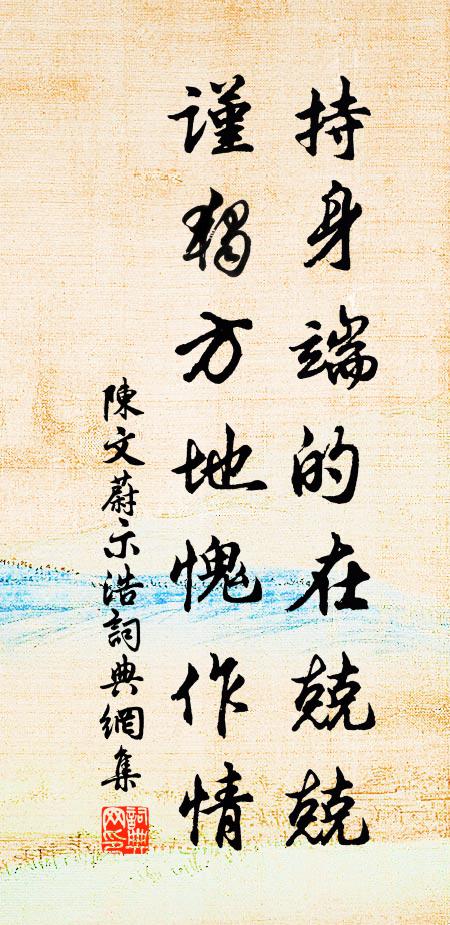 持身端的在兢兢
謹独方地愧作情
陳文蔚示浩詞典網集
詞典网